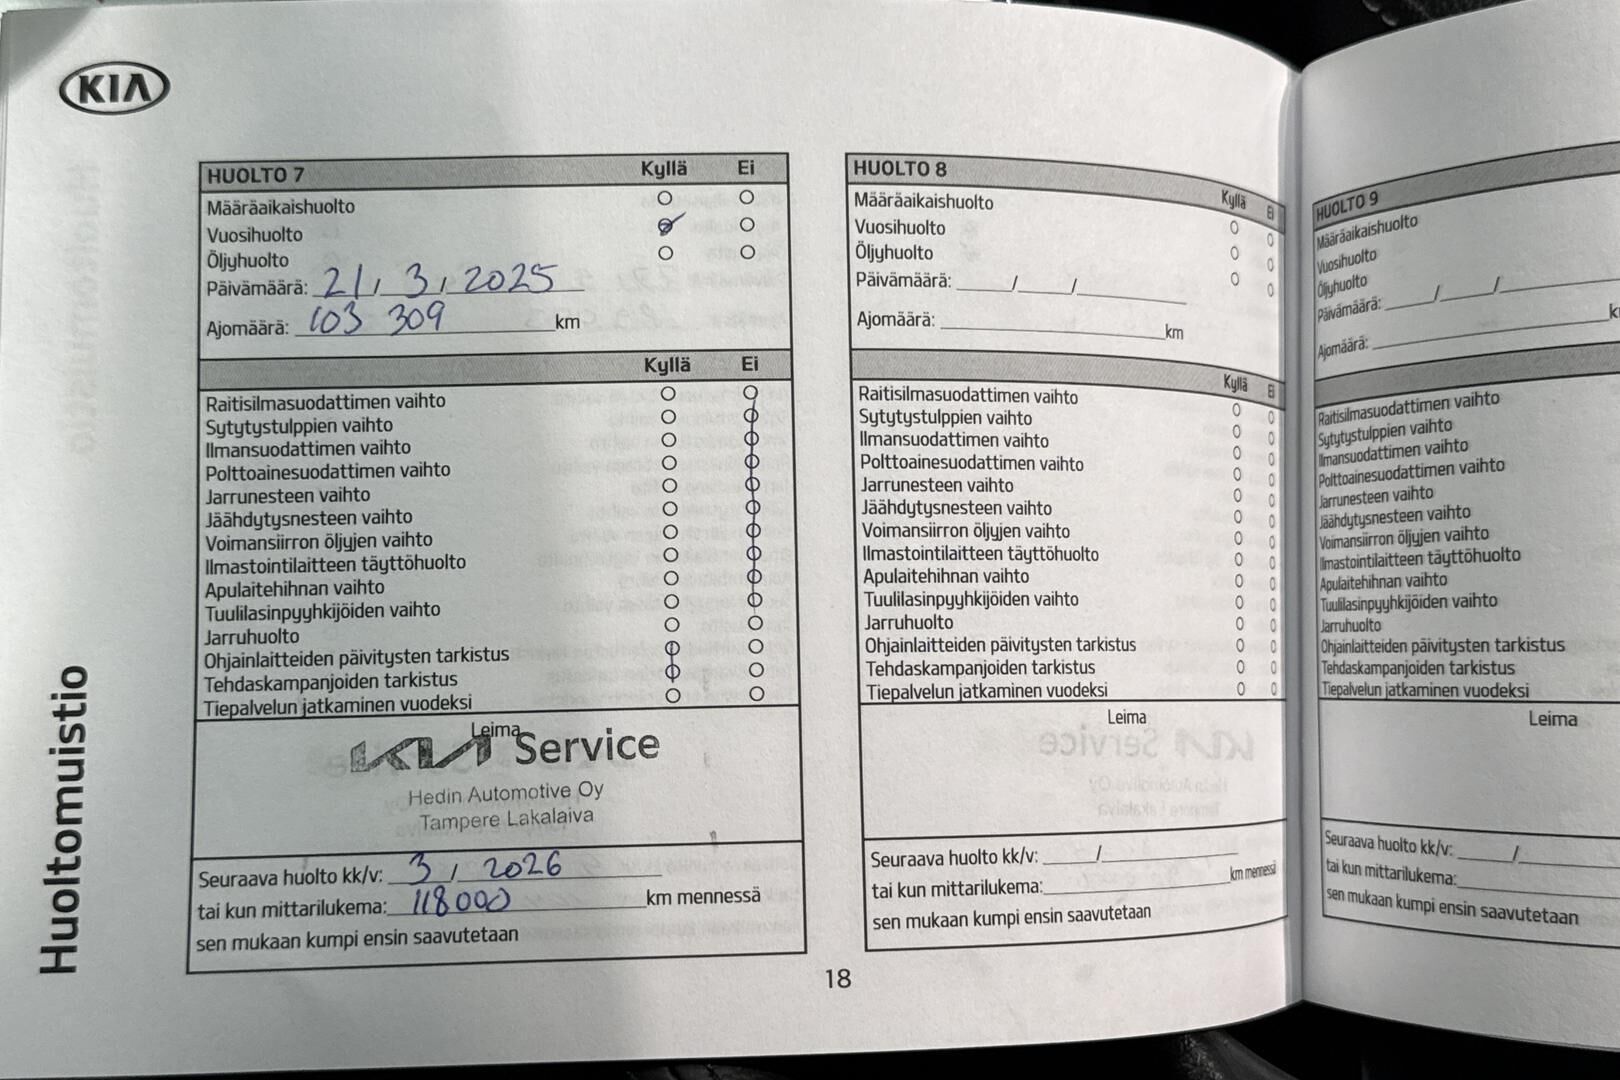 KIA
Huoltomuistio
HUOLTO 7 Kyllä Ei
Määräaikaishuolto
Vuosihuolto
Öljyhuolto
Päivämäärä: 21 / 3 / 2025
Ajomäärä: 103 309 km
Kyllä Ei
Raitisilmasuodattimen vaihto
Sytytystulppien vaihto
Ilmansuodattimen vaihto
Polttoainesuodattimen vaihto
Jarrunesteen vaihto
Jäähdytysnesteen vaihto
Voimansiirron öljyjen vaihto
Ilmastointilaitteen täyttöhuolto
Apulaitehihnan vaihto
Tuulilasinpyyhkijöiden vaihto
Jarruhuolto
Ohjainlaitteiden päivitysten tarkistus
Tehdaskampanjoiden tarkistus
Tiepalvelun jatkaminen vuodeksi
Leima
KIA Service
Hedin Automotive Oy
Tampere Lakalaiva
Seuraava huolto kk/v: 3 / 2026
tai kun mittarilukema: 118000 km mennessä
sen mukaan kumpi ensin saavutetaan
HUOLTO 8
Kyllä Ei
Määräaikaishuolto
Vuosihuolto
Öljyhuolto
Päivämäärä: / /
Ajomäärä: km
Kyllä Ei
Raitisilmasuodattimen vaihto
Sytytystulppien vaihto
Ilmansuodattimen vaihto
Polttoainesuodattimen vaihto
Jarrunesteen vaihto
Jäähdytysnesteen vaihto
Voimansiirron öljyjen vaihto
Ilmastointilaitteen täyttöhuolto
Apulaitehihnan vaihto
Tuulilasinpyyhkijöiden vaihto
Jarruhuolto
Ohjainlaitteiden päivitysten tarkistus
Tehdaskampanjoiden tarkistus
Tiepalvelun jatkaminen vuodeksi
Leima
Seuraava huolto kk/v: /
tai kun mittarilukema: km mennessä
sen mukaan kumpi ensin saavutetaan
18
HUOLTO 9
Määräaikaishuolto
Vuosihuolto
Öljyhuolto
Päivämäärä: / /
Ajomäärä: k
Raitisilmasuodattimen vaihto
Sytytystulppien vaihto
Ilmansuodattimen vaihto
Polttoainesuodattimen vaihto
Jarrunesteen vaihto
Jäähdytysnesteen vaihto
Voimansiirron öljyjen vaihto
Ilmastointilaitteen täyttöhuolto
Apulaitehihnan vaihto
Tuulilasinpyyhkijöiden vaihto
Jarruhuolto
Ohjainlaitteiden päivitysten tarkistus
Tehdaskampanjoiden tarkistus
Tiepalvelun jatkaminen vuodeksi
Leima
Seuraava huolto kk/v: /
tai kun mittarilukema:
sen mukaan kumpi ensin saavutetaan